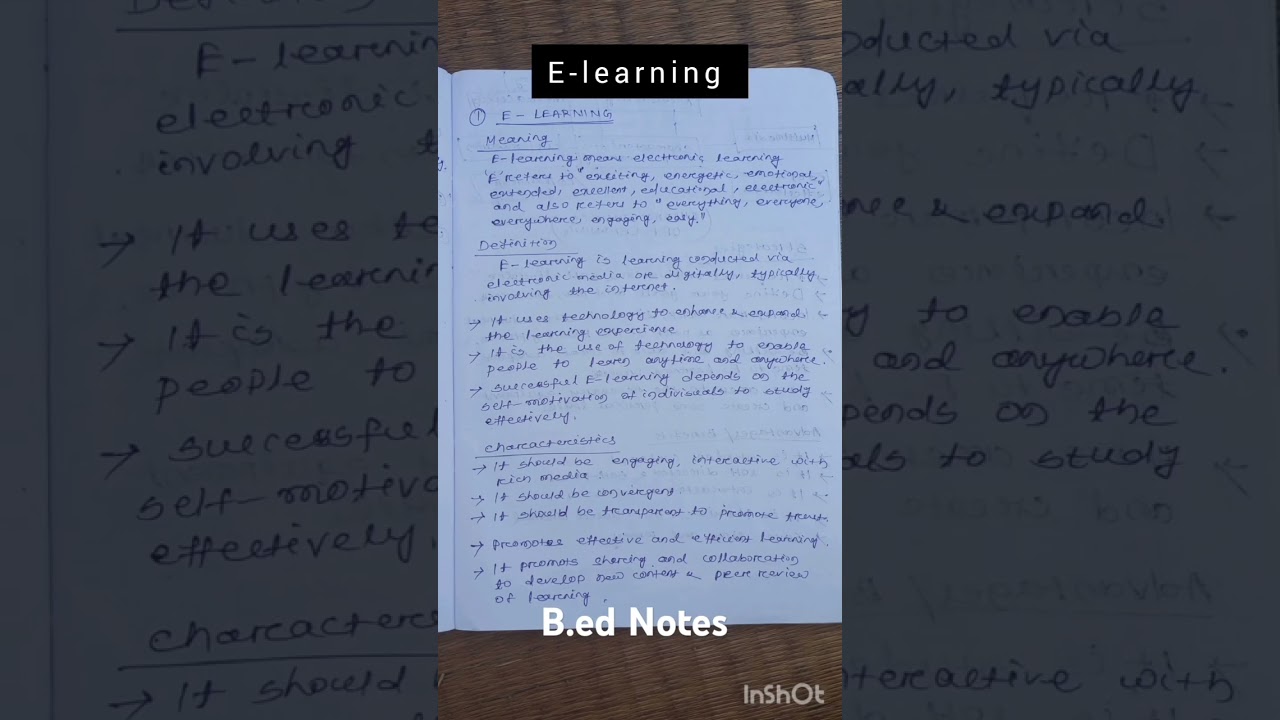 E-learning
① E - LEARNING
Meaning
E-learning means electronic learning
'E' refers to "exciting, energetic, emotional,
extended, excellent, educational, electronic"
and also refers to "everything, everyone,
everywhere, engaging, easy."
Definition
E-learning is learning conducted via
electronic media or digitally, typically
involving the internet.
→ It uses technology to enhance & expand
the learning experience
→ It is the use of technology to enable
people to learn anytime and anywhere.
→ successful E-learning depends on the
self-motivation of individuals to study
effectively.
Characteristics
→ It should be engaging, interactive with
rich media
→ It should be convergent
→ It should be transparent to promote trust.
→ promotes effective and efficient learning.
→ It promots sharing and collaboration
to develop new content & peer review
of learning.
B.ed Notes
InShOt